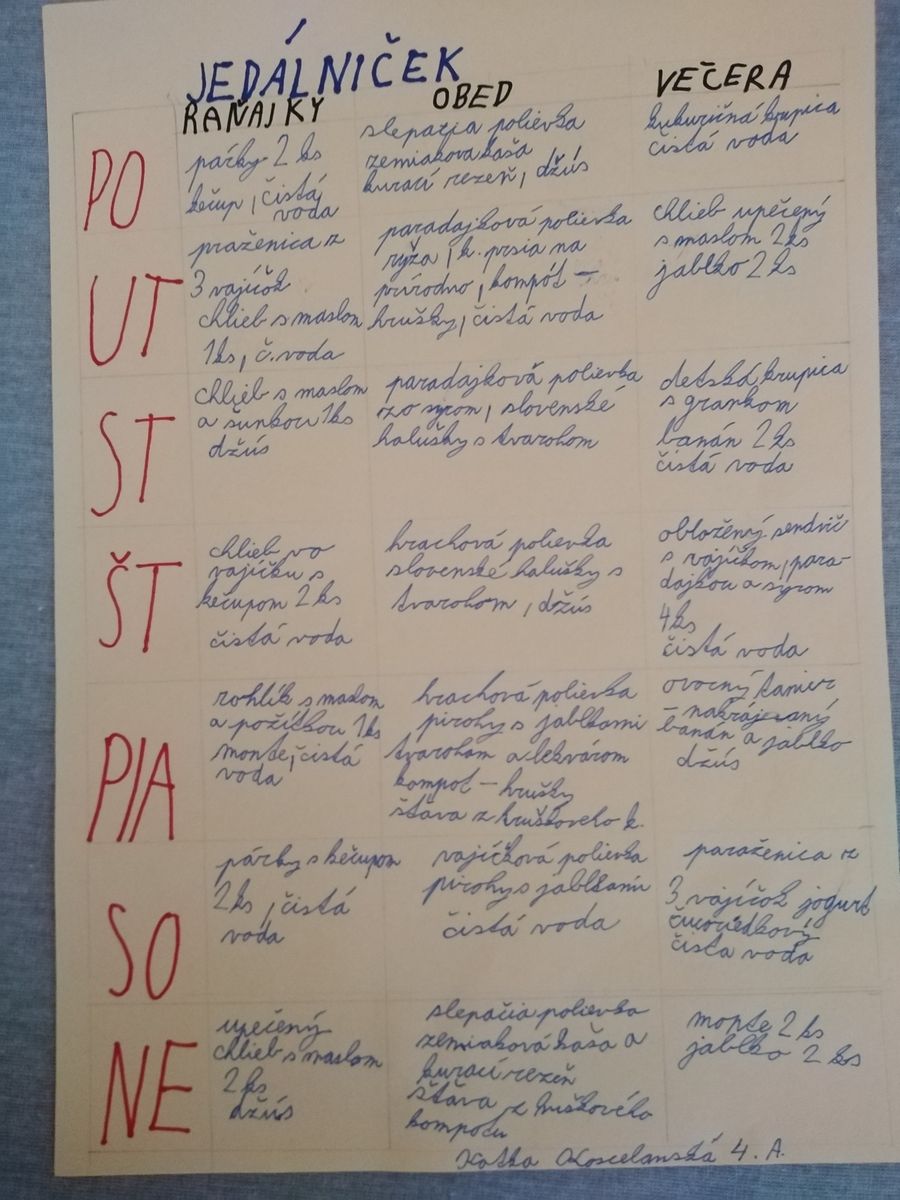 JEDÁLNIČEK
RAŇAJKY OBED VEČERA
PO
párky 2 ks
kečup, čistá
voda
slepačia polievka
zemiaková kaša
kurací rezeň, džús
kukuričná krupica
čistá voda
UT
praženica z
3 vajíčok
chlieb s maslom
1ks, č. voda
paradajková polievka
ryža, k. prsia na
prírodno, kompót –
hrušky, čistá voda
chlieb upečený
s maslom 2 ks
jablko 2 ks
ST
chlieb s maslom
a šunkou 1ks
džús
paradajková polievka
zo syrom, slovenské
halušky s tvarohom
detská krupica
s grankom
banán 2 ks
čistá voda
ŠT
chlieb vo
vajíčku s
kečupom 2 ks
čistá voda
hrachová polievka
slovenské halušky s
tvarohom, džús
obložený sendvič
s vajíčkom, para-
dajkou a syrom
4ks
čistá voda
PIA
rohlík s maslom
a pažítkou 1ks
monte, čistá
voda
hrachová polievka
pirohy s jablkami
tvarohom a lekvárom
kompot – hrušky
štava z hruškového k.
ovocný tanier
– nakrájaný
banán a jablko
džús
SO
párky s kečupom
2 ks, čistá
voda
vajíčková polievka
pirohy s jablkami
čistá voda
paraženica z
3 vajíčok jogurt
čučoriedkový
čista voda
NE
upečený
chlieb s maslom
2 ks
džús
slepačia polievka
zemiaková kaša a
kurací rezeň
štáva z hruškového
kompótu
monte 2 ks
jablko 2 ks
Katka Koscelanská 4. A.